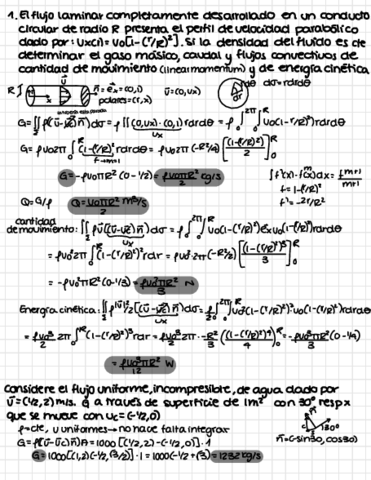 1. El flujo laminar completamente desarrollado en un conducto
circular de radio R presenta el perfil de velocidad parabólico
dado por: Ux(r) = U0[1-(r/R)²]. Si la densidad del fluido es de
determinar el gasto másico, caudal y flujos convectivos de
cantidad de movimiento (linear momentum) y de energía cinética.
R n̄ = ēx = (0,1) ū = (0,Ux) dσ = rdrdθ
polares = (r,x)
G = ∬ρ(ū-ūc)n̄)dσ = ρ∬(0,Ux)·(0,1)rdrdθ = ρ∫₀^2π∫₀^R U0(1-(r/R)²)rdrdθ
G = ρU0 2π∫₀^R(1-(r/R)²)rdrdθ = ρU0 2π(-R²/4)[(1-(r/R)²)²/2]₀^R
G = -ρU0πR²(0-1/2) = ρU0πR²/2 kg/s
∫f'(x)·f(x)^m dx = f^m+1/m+1
f = 1-(r/R)²
f' = -2r/R²
Q = G/ρ Q = U0πR²/2 m³/s
cantidad
de movimiento: ∬ρū[(ū-ūc)n̄]dσ = ρ∫₀^2π∫₀^R U0(1-(r/R)²)ēx U0(1-(r/R)²)rdrdθ
= ρU0² 2π∫₀^R(1-(r/R)²)²rdr = ρU0²·2π(-R²/2)[(1-(r/R)²)³/3]₀^R
= -ρU0²πR²(0-1/3) = ρU0²πR²/3 N
Energía cinética: ∬ρ|ū|²/2[(ū-ūc)n̄]dσ = ρ/2∫₀^2π∫₀^R U0²(1-(r/R)²)²U0(1-(r/R)²)rdrdθ
= ρU0³/2 2π∫₀^R(1-(r/R)²)³rdr = ρU0³/2 2π·-R²/2((1-(r/R)²)⁴/4)₀^R = -ρU0³πR²/2(0-1/4)
= ρU0³πR²/12 W
Considere el flujo uniforme, incompresible, de agua dado por
ū = (1/2,2) m/s. G a través de superficie de 1m² con 30° resp x
que se mueve con Uc = (-1/2,0)
ρ = cte, ū uniformes → no hace falta integrar
G = ρ(ū-ūc)n̄)A = 1000[(1/2,2)-(-1/2,0)]·1
n̄ = (-sin30, cos30)
G = 1000[(1,2)(-1/2,√3/2)]·1 = 1000(-1/2+√3) = 1232 kg/s